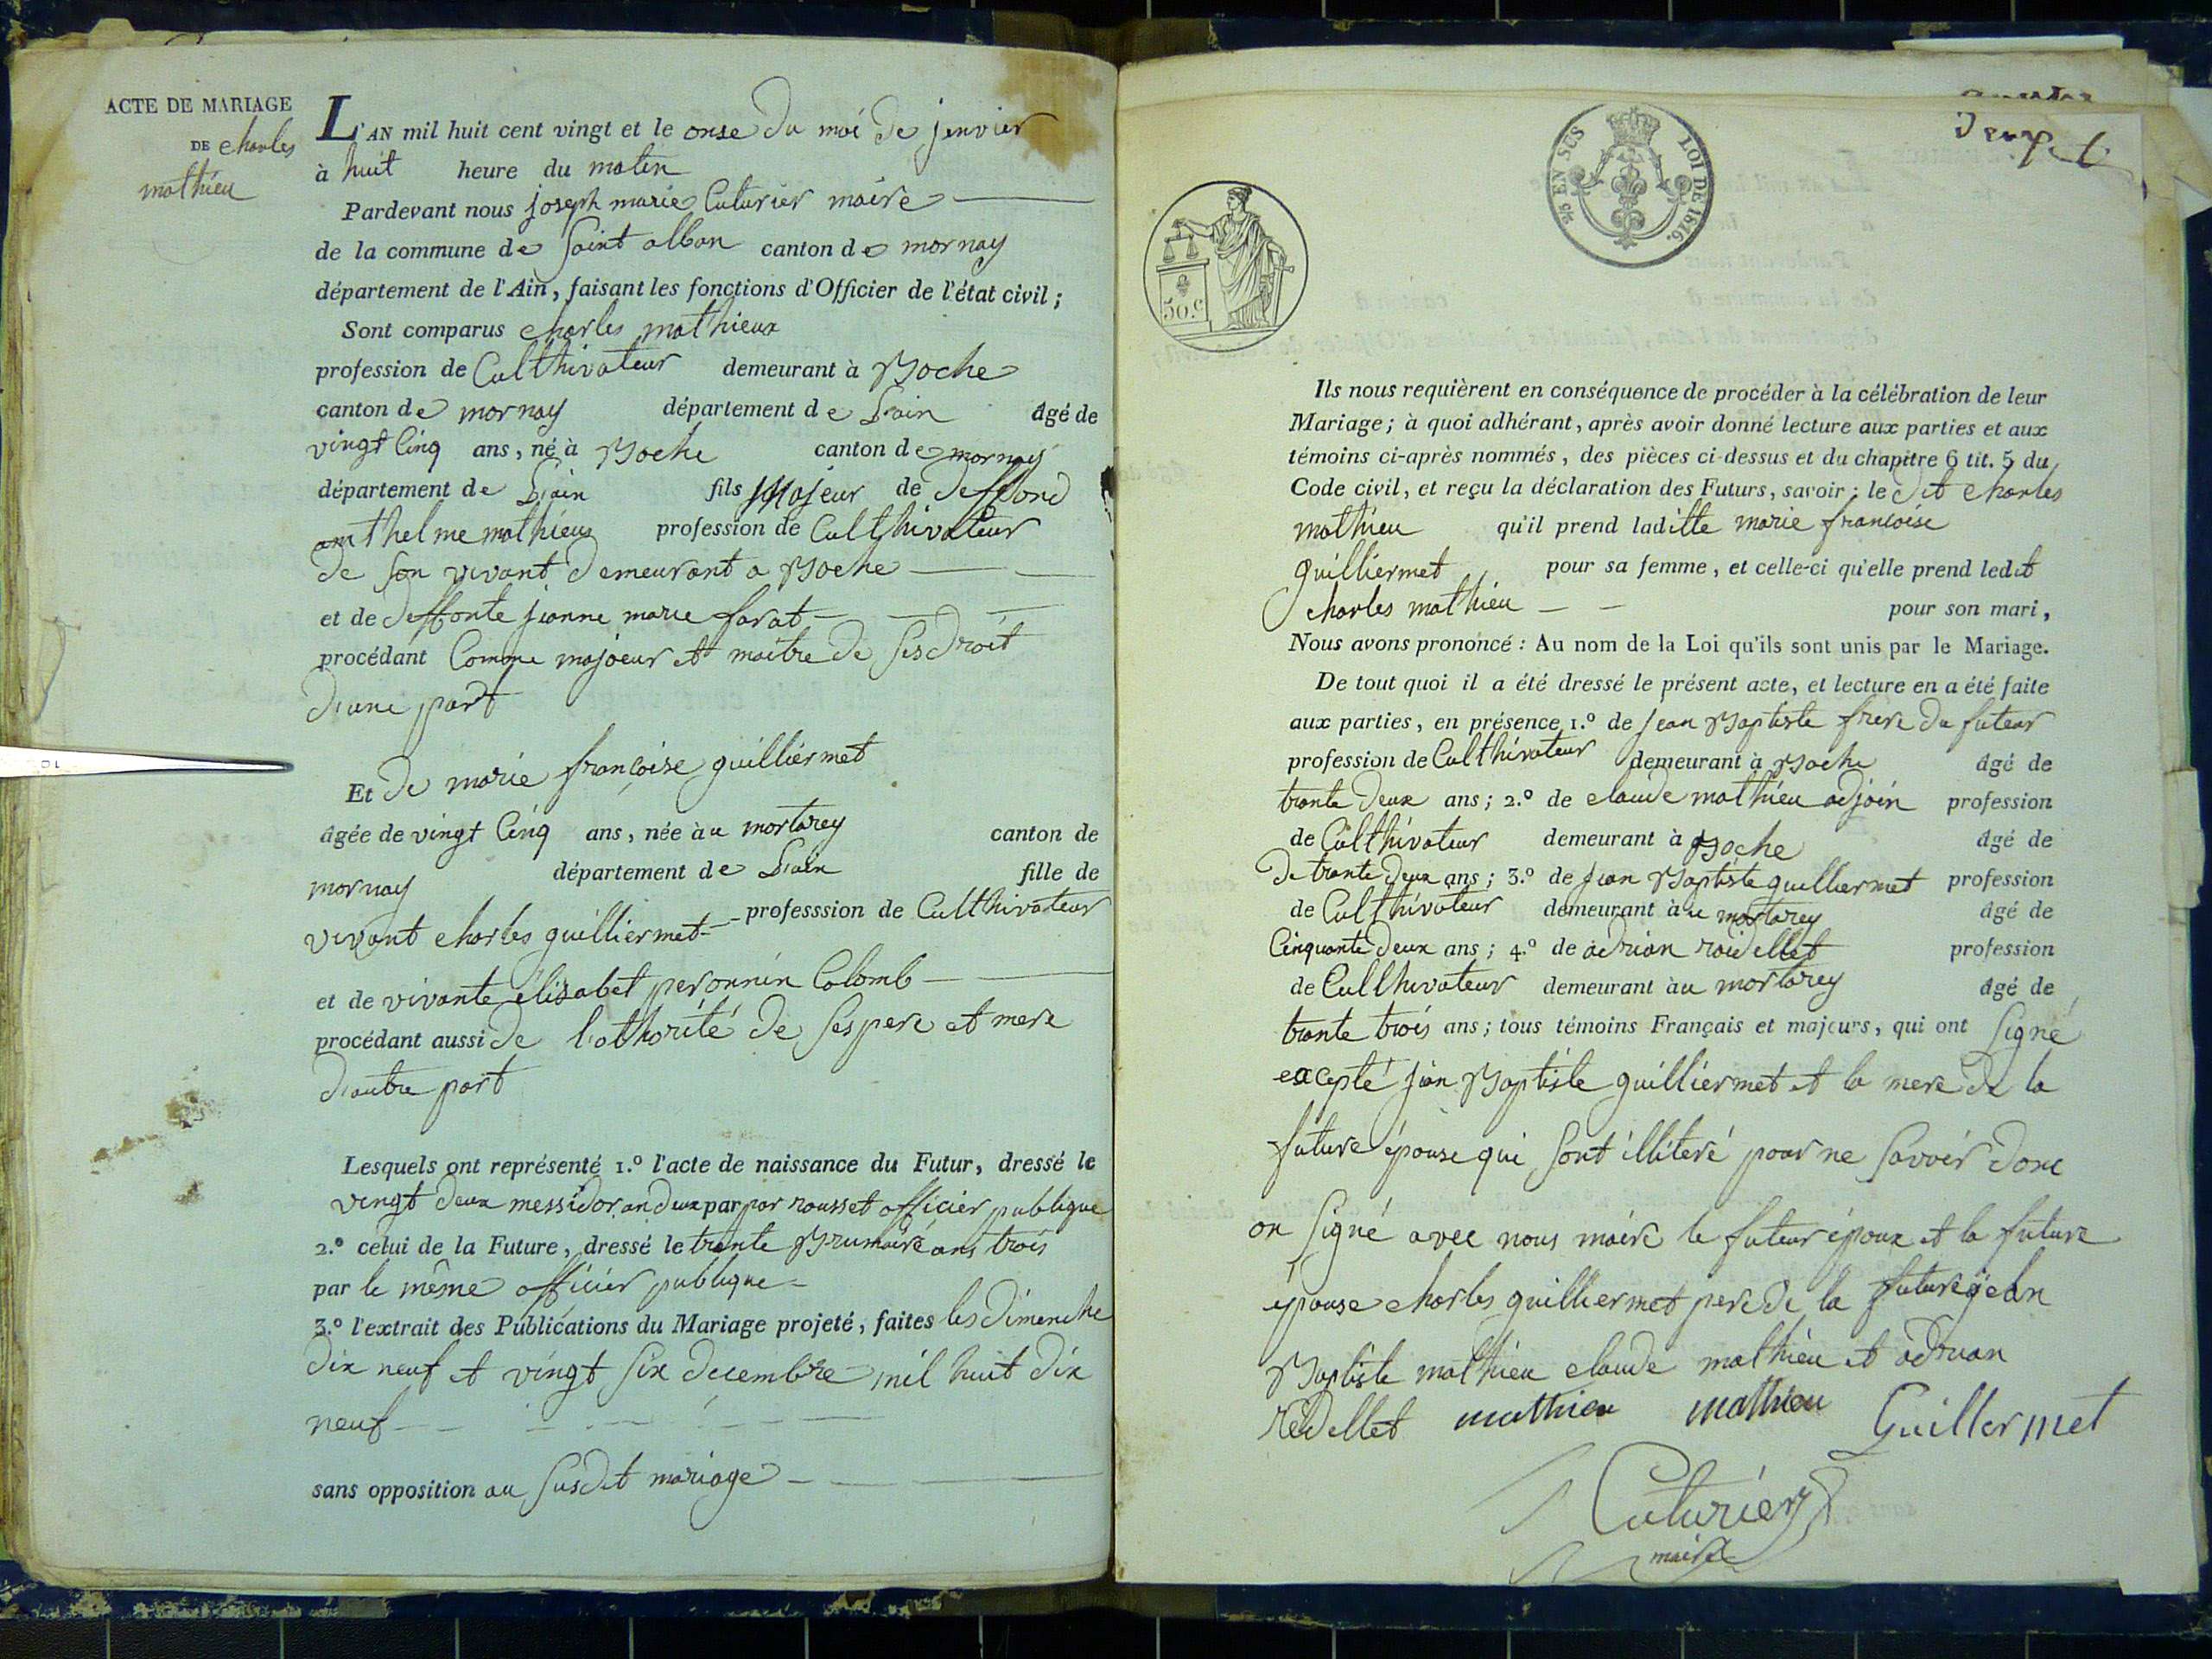 ACTE DE MARIAGE
DE charles
mathieu
L'AN mil huit cent vingt et le onse du moi de jenvier
à huit heure du matin
Pardevant nous joseph marie Cuturier maire
de la commune de Saint alban canton de mornay
département de l'Ain, faisant les fonctions d'Officier de l'état civil ;
Sont comparus charles mathieux
profession de Culthivateur demeurant à Boche
canton de mornay département de L'ain âgé de
vingt Cinq ans, né à Boche canton de mornay
département de L'ain fils Majeur de deffond
amthelme mathieux profession de Culthivateur
de son vivant demeurant a Boche
et de deffonte jeanne marie farat
procédant Comme majoeur et maitre de ses droit
d'une part
Et de marie françoise guilliermet
âgée de vingt Cinq ans, née àu mortarey canton de
mornay département de L'ain fille de
vivant charles guilliermet professsion de Culthivateur
et de vivante élisabet peronnin Colomb
procédant aussi de l'othorité de ses pere et mere
d'autre part
Lesquels ont représenté 1.° l'acte de naissance du Futur, dressé le
vingt deux messidor an deux par par rousset officier publique
2.° celui de la Future, dressé le trante Brumaire ans trois
par le même officier publique
3.° l'extrait des Publications du Mariage projeté, faites les dimenche
dix neuf et vingt six decembre mil huit dix
neuf
sans opposition au susdit mariage
5/6 EN SUS LOI DE 1816.
50.c
Ils nous requièrent en conséquence de procéder à la célébration de leur
Mariage ; à quoi adhérant, après avoir donné lecture aux parties et aux
témoins ci-après nommés, des pièces ci-dessus et du chapitre 6 tit. 5 du
Code civil, et reçu la déclaration des Futurs, savoir : le dit charles
mathieu qu'il prend laditte marie francoise
guilliermet pour sa femme, et celle-ci qu'elle prend ledit
charles mathieu pour son mari,
Nous avons prononcé : Au nom de la Loi qu'ils sont unis par le Mariage.
De tout quoi il a été dressé le présent acte, et lecture en a été faite
aux parties, en présence 1.° de jean Baptiste frere du futeur
profession de Culthivateur demeurant à Boche âgé de
trante deux ans ; 2.° de claude mathieu adjoin profession
de Culthivateur demeurant à Boche âgé de
de trante deux ans ; 3.° de jean Baptiste guilliermet profession
de Culthivateur demeurant àu mortarey âgé de
Cinquante deux ans ; 4.° de adrian roidellet profession
de Culthivateur demeurant àu mortarey âgé de
trante trois ans ; tous témoins Français et majeurs, qui ont signé
excepté jean Baptiste guilliermet et la mere de la
future épouse qui sont illiteré pour ne savoir donc
on signé avec nous maire le futeur époux et la future
épouse charles guilliermet pere de la future jean
Baptiste mathieu claude mathieu et adrian
redellet mathieu mathieu Guillermet
Cuturier
maire